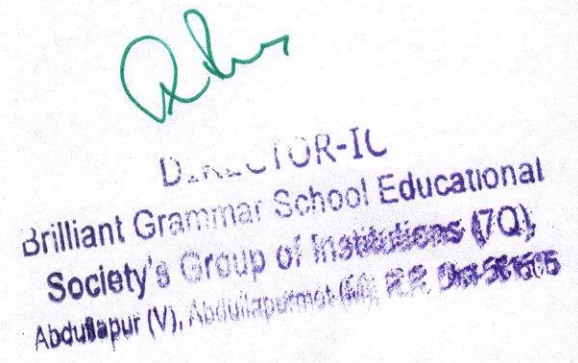 DIRECTOR-IC
Brilliant Grammar School Educational
Society's Group of Institutions (7Q),
Abdullapur (V), Abdullapurmet (M), R.R. Dist-501505